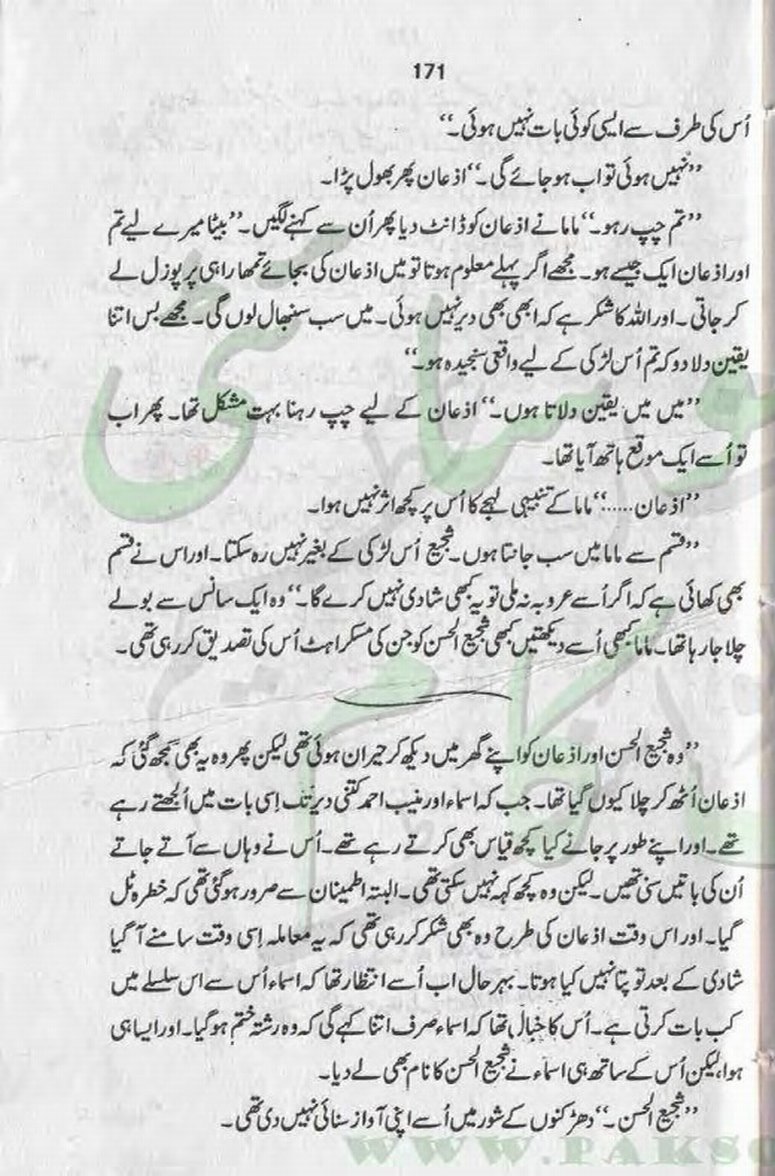 171
اُس کی طرف سے ایسی کوئی بات نہیں ہوئی۔‘‘
’’نہیں ہوئی تو اب ہو جائے گی۔‘‘ اذعان پھر بھول پڑا۔
’’تم چپ رہو۔‘‘ ماما نے اذعان کو ڈانٹ دیا پھر اُن سے کہنے لگیں۔ ’’بیٹا میرے لیے تم
اور اذعان ایک جیسے ہو۔ مجھے اگر پہلے معلوم ہوتا تو میں اذعان کی بجائے تمھارا ہی پرپوزل لے
کر جاتی۔ اور اللہ کا شکر ہے کہ ابھی بھی دیر نہیں ہوئی۔ میں سب سنبھال لوں گی۔ مجھے بس اتنا
یقین دلا دو کہ تم اُس لڑکی کے لیے واقعی سنجیدہ ہو۔‘‘
’’میں میں یقین دلاتا ہوں۔‘‘ اذعان کے لیے چپ رہنا بہت مشکل تھا۔ پھر اب
تو اُسے ایک موقع ہاتھ آیا تھا۔
’’اذعان......‘‘ ماما کے تنبیہی لہجے کا اُس پر کچھ اثر نہیں ہوا۔
’’قسم سے ماما میں سب جانتا ہوں۔ شجیع اُس لڑکی کے بغیر نہیں رہ سکتا۔ اور اس نے قسم
بھی کھائی ہے کہ اگر اُسے عروبہ نہ ملی تو یہ کبھی شادی نہیں کرے گا۔‘‘ وہ ایک سانس سے بولے
چلا جا رہا تھا۔ ماما کبھی اُسے دیکھتیں کبھی شجیع الحسن کو جن کی مسکراہٹ اُس کی تصدیق کر رہی تھی۔
’’وہ شجیع الحسن اور اذعان کو اپنے گھر میں دیکھ کر حیران ہوئی تھی لیکن پھر وہ یہ بھی سمجھ گئی کہ
اذعان اُٹھ کر چلا کیوں گیا تھا۔ جب کہ اسماء اور منیب احمد کتنی دیر تک اِسی بات میں اُلجھتے رہے
تھے۔ اور اپنے طور پر جانے کیا کچھ قیاس بھی کرتے رہے تھے۔ اُس نے وہاں سے آتے جاتے
اُن کی باتیں سنی تھیں۔ لیکن وہ کچھ کہہ نہیں سکتی تھی۔ البتہ اطمینان سے ضرور ہو گئی تھی کہ خطرہ ٹل
گیا۔ اور اس وقت اذعان کی طرح وہ بھی شکر کر رہی تھی کہ یہ معاملہ اِسی وقت سامنے آ گیا
شادی کے بعد تو پتا نہیں کیا ہوتا۔ بہر حال اب اُسے انتظار تھا کہ اسماء اُس سے اس سلسلے میں
کب بات کرتی ہے۔ اُس کا خیال تھا کہ اسماء صرف اتنا کہے گی کہ وہ رشتہ ختم ہو گیا۔ اور ایسا ہی
ہوا، لیکن اُس کے ساتھ ہی اسماء نے شجیع الحسن کا نام بھی لے دیا۔
’’شجیع الحسن۔‘‘ دھڑکنوں کے شور میں اُسے اپنی آواز سنائی نہیں دی تھی۔
WWW.PAKSO